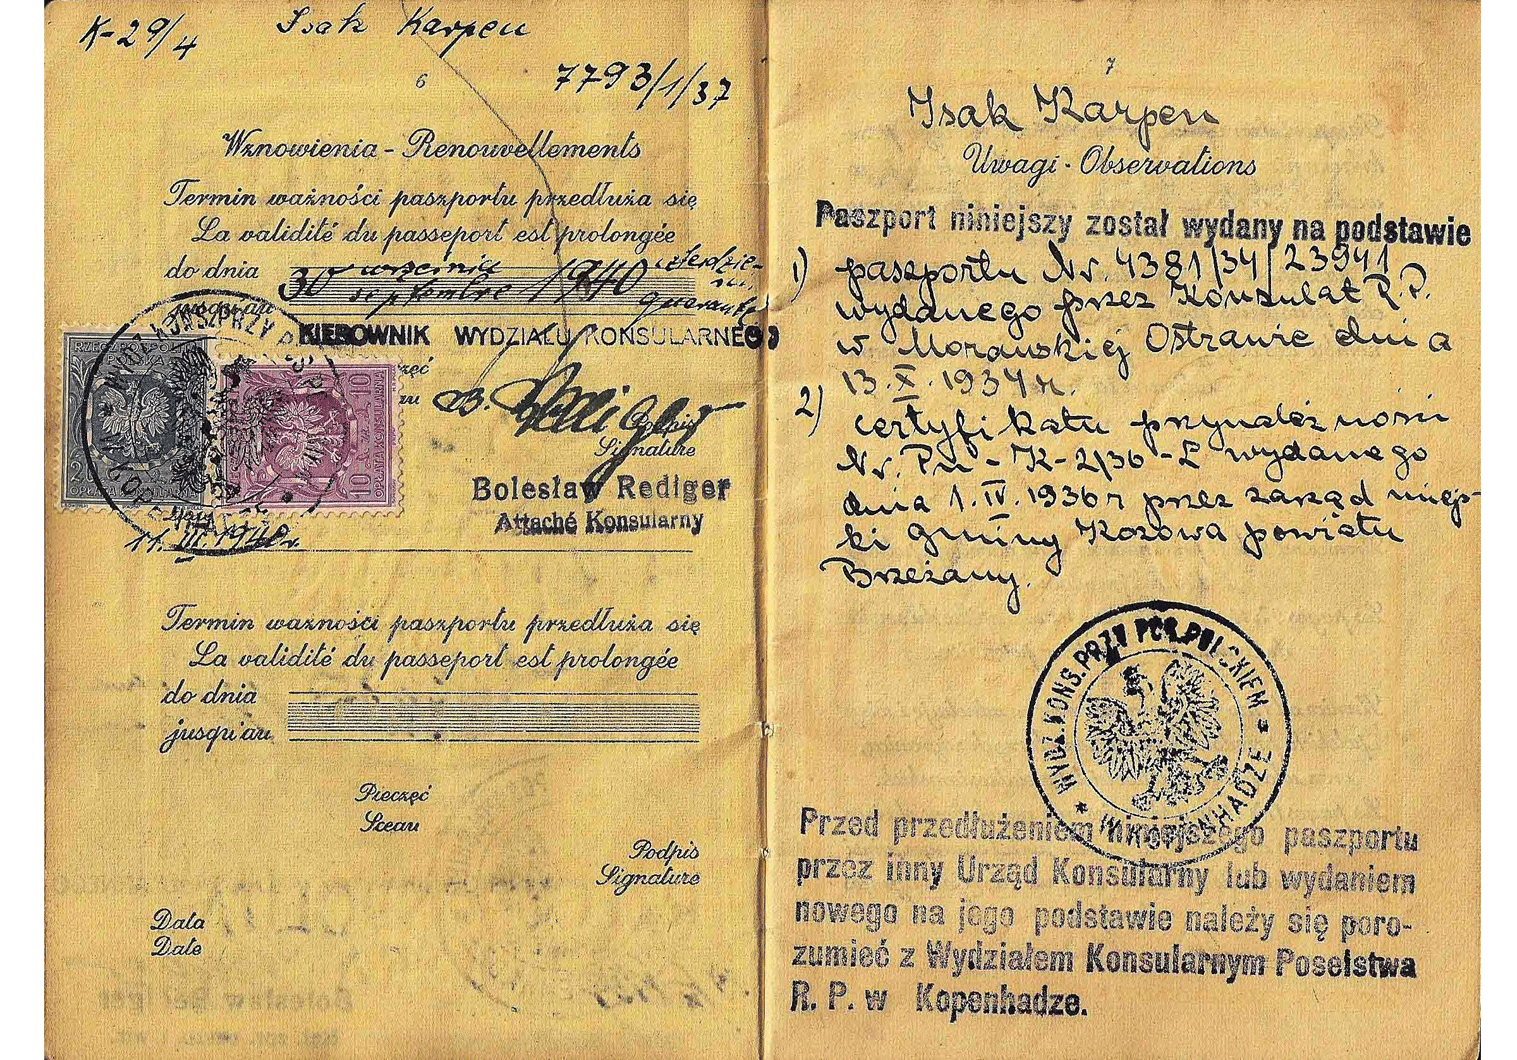 K-29/4 Isak Karpen
6
7793/1/37
Wznowienia - Renouvellements
Termin ważności paszportu przedłuża się
La validité du passeport est prolongée
do dnia 30 września 1940 czterdzie-
jusqu'au septembre
KIEROWNIK WYDZIAŁU KONSULARNEGO
B. Rediger
Podpis
Signature
Bolesław Rediger
Attaché Konsularny
11. III. 1940 r.
Termin ważności paszportu przedłuża się
La validité du passeport est prolongée
do dnia
jusqu'au
Pieczęć
Sceau
Podpis
Signature
Data
Date
7
Isak Karpen
Uwagi - Observations
Paszport niniejszy został wydany na podstawie
1) paszportu Nr. 4381/34/23941
wydanego przez Konsulat R.P.
w Morawskiej Ostrawie dnia
13. X. 1934 r.
2) certyfikatu przynależności
Nr. Pn-K-2/36-L wydanego
dnia 1. IV. 1936 r przez zarząd miejs-
ki gminy Kozowa powiatu
Brzeżany.
WYDZ. KONS. PRZY POS. POLSKIEM
* W KOPENHADZE *
Przed przedłużeniem niniejszego paszportu
przez inny Urząd Konsularny lub wydaniem
nowego na jego podstawie należy się poro-
zumieć z Wydziałem Konsularnym Poselstwa
R. P. w Kopenhadze.